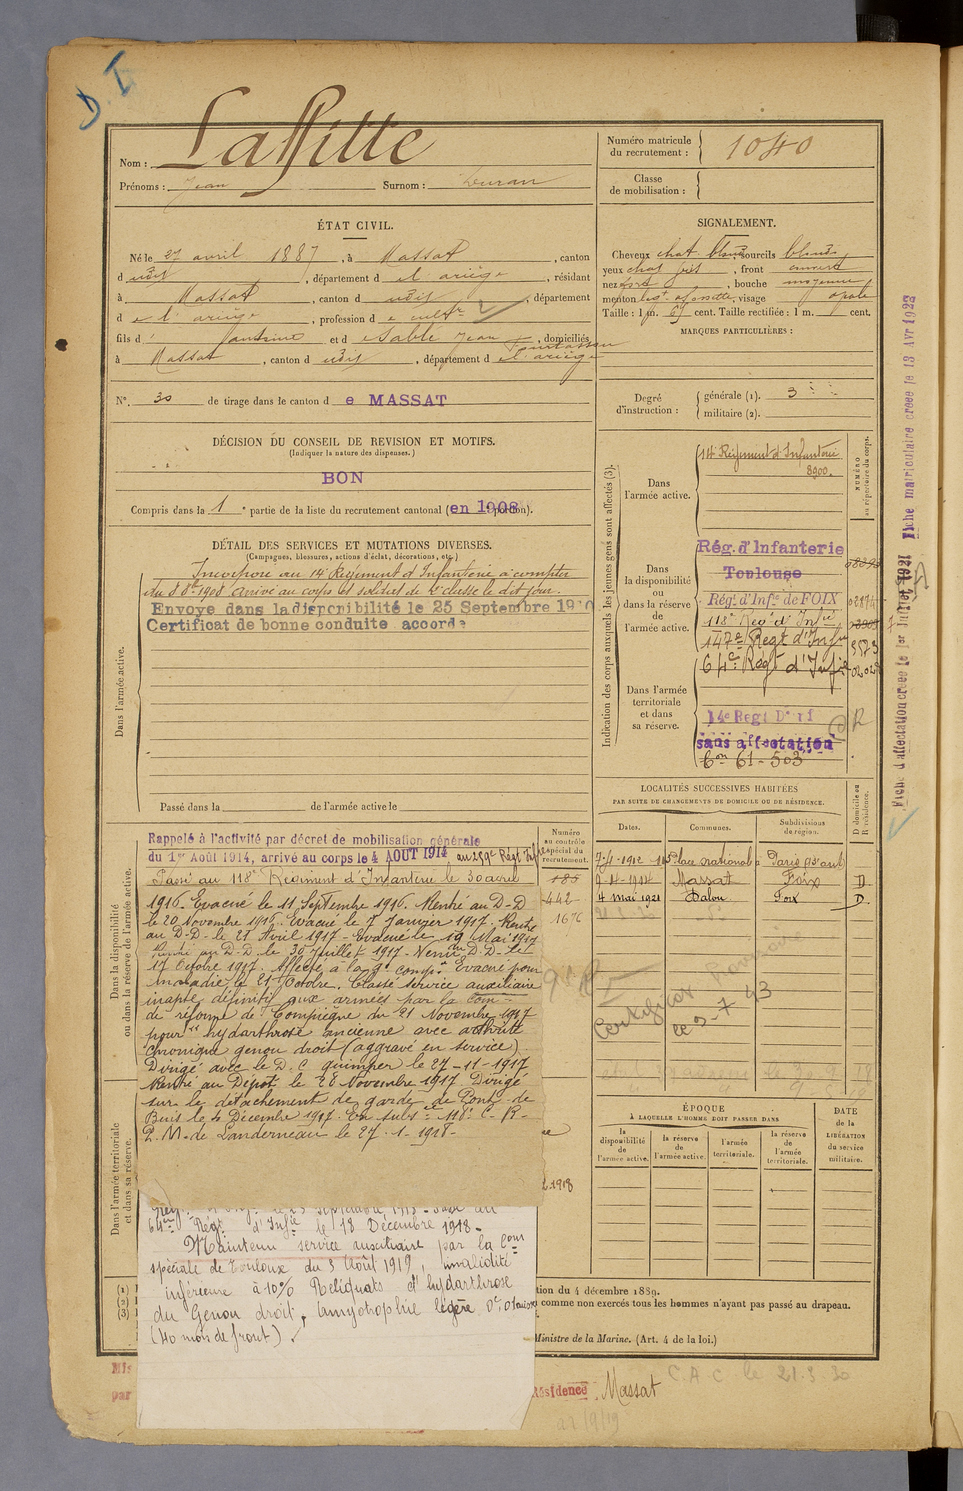 D. I
Nom : Laffitte
Prénoms : Jean Surnom : Duran
Numéro matricule du recrutement : 1040
Classe de mobilisation :
ÉTAT CIVIL.
Né le 27 avril 1887, à Massat, canton
dudit, département de l'ariège, résidant
à Massat, canton dudit, département
de l'ariège, profession de cultr
fils d' Antoine et de Sable Jeanne, domiciliés
à Massat, canton dudit, département de l'ariège
N° 30 de tirage dans le canton de MASSAT
SIGNALEMENT.
Cheveux chat blond sourcils blonds
yeux chat gris, front ouvert
nez fort, bouche moyenne
menton visage ovale
Taille : 1 m. 67 cent. Taille rectifiée : 1 m. cent.
MARQUES PARTICULIÈRES :
Degré d'instruction : générale (1). 3
militaire (2).
DÉCISION DU CONSEIL DE REVISION ET MOTIFS.
(Indiquer la nature des dispenses.)
BON
Compris dans la 1e partie de la liste du recrutement cantonal (en 1908 portion).
DÉTAIL DES SERVICES ET MUTATIONS DIVERSES.
(Campagnes, blessures, actions d'éclat, décorations, etc.)
Dans l'armée active.
Incorporé au 14e Régiment d'Infanterie à compter
du 8 8bre 1908 arrivé au corps et soldat de 2e classe le dit jour.
Envoyé dans la disponibilité le 25 Septembre 1910
Certificat de bonne conduite accordé
Passé dans la de l'armée active le
Indication des corps auxquels les jeunes gens sont affectés (3).
NUMÉRO au répertoire du corps.
Dans l'armée active.
14e Régiment d'Infanterie
8900.
Dans la disponibilité ou dans la réserve de l'armée active.
Rég. d'Infanterie
Toulouse
Régt d'Infie de FOIX
118e Régt d'Infie
147e Régt d'Infie
64e Régt d'Infie
Dans l'armée territoriale et dans sa réserve.
14e Regt D'Inf
sans affectation
Con 61-503
LOCALITÉS SUCCESSIVES HABITÉES
PAR SUITE DE CHANGEMENTS DE DOMICILE OU DE RÉSIDENCE.
Dates. Communes. Subdivisions de région. D domicile ou R résidence.
7-4-1912 Place nationale Paris
Massat Foix D
4 mai 1921 Dalou Foix D
Certificat provisoire
le 3-7 43
ÉPOQUE
À LAQUELLE L'HOMME DOIT PASSER DANS
la disponibilité de l'armée active.
la réserve de l'armée active.
l'armée territoriale.
la réserve de l'armée territoriale.
DATE de la LIBÉRATION du service militaire.
Dans la disponibilité ou dans la réserve de l'armée active.
Numéro au contrôle spécial du recrutement.
185
442
1676
Rappelé à l'activité par décret de mobilisation générale
du 1er Août 1914, arrivé au corps le 4 AOUT 1914 au 259e Régt Infie
Passé au 118e Régiment d'Infanterie le 30 avril
1916. Evacué le 11 Septembre 1916. Rentré au D-D
le 20 Novembre 1916. Evacué le 7 Janvier 1917. Rentré
au D-D- le 21 Avril 1917 - Evacué le 19 Mai 1917
Rentré au D.D. le 30 Juillet 1917 - Venu du D.D. le
17 Octobre 1917. Affecté à la 9e compie Evacué pour
maladie le 21 Octobre. Classé service auxiliaire
inapte définitif aux armées par la com-
de réforme de Compiègne du 21 Novembre 1917
pour "hydarthrose ancienne avec arthrite
chronique genou droit (aggravé en service)
Dirigé avec le D. C quimper le 27-11-1917
Rentré au Depot le 28 Novembre 1917 Dirigé
sur le détachement de garde de Pont-de
Buis le 4 Décembre 1917. En subsce 118e C-R-
P. M- de Landerneau le 27-1-1918-
Dans l'armée territoriale et dans sa réserve.
64me Régt d'Infie le 18 Décembre 1918-
Maintenu service auxiliaire par la Com
spéciale de Toulouse du 3 Août 1919, invalidité
inférieure à 10% Reliquats d'hydarthrose
du Genou droit, amyotrophie légère
(40 mois de front).
(1)
(2)
(3)
tion du 4 décembre 1889.
comme non exercés tous les hommes n'ayant pas passé au drapeau.
Ministre de la Marine. (Art. 4 de la loi.)
Résidence Massat
C.A.C le 21.3.30
22/9/19
Mis
par
Fiche d'affectation créée le 1er Juillet 1921 Fiche matriculaire créée le 13 Avr 1922